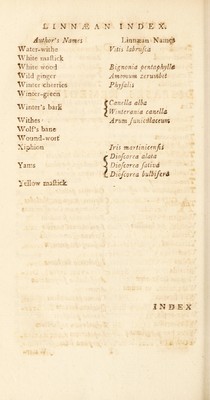 LINNÆAN INDEX.
Author's Names Linnæan Names
Water-withe Vitis labrusca
White mastick
White wood Bignonia pentaphylla
Wild ginger Amomum zerumbet
Winter cherries Physalis
Winter-green
Winter's bark { Canella alba
Winterania canella
Withes Arum funiculaceum
Wolf's bane
Wound-wort
Xiphion Iris martinicensis
Yams { Dioscorea alata
Dioscorea sativa
Dioscorea bulbifera
Yellow mastick
INDEX